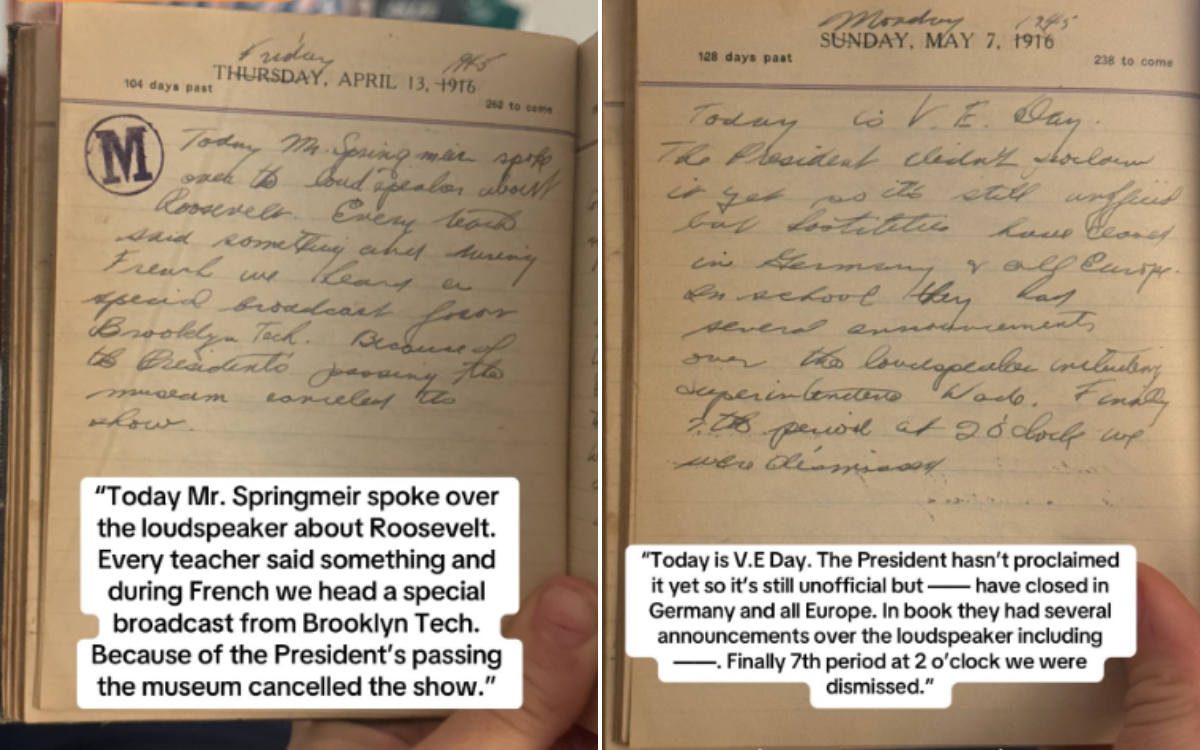 Friday 1945
THURSDAY, APRIL 13, 1916
104 days past
262 to come
M
Today Mr. Springmeir spoke
over the loudspeaker about
Roosevelt. Every teach
said something and during
French we heard a
special broadcast from
Brooklyn Tech. Because of
the President's passing the
museum canceled its
show.
“Today Mr. Springmeir spoke over
the loudspeaker about Roosevelt.
Every teacher said something and
during French we head a special
broadcast from Brooklyn Tech.
Because of the President’s passing
the museum cancelled the show.”
Monday 1945
SUNDAY, MAY 7, 1916
128 days past
238 to come
Today is V. E. Day.
The President didn't proclaim
it yet so it's still unofficial
but hostilities have ceased
in Germany & all Europe.
In school they had
several announcements
over the loudspeaker including
Superintendent Wade. Finally
7th period at 2 o'clock we
were dismissed
“Today is V.E Day. The President hasn’t proclaimed
it yet so it’s still unofficial but —— have closed in
Germany and all Europe. In book they had several
announcements over the loudspeaker including
——. Finally 7th period at 2 o’clock we were
dismissed.”